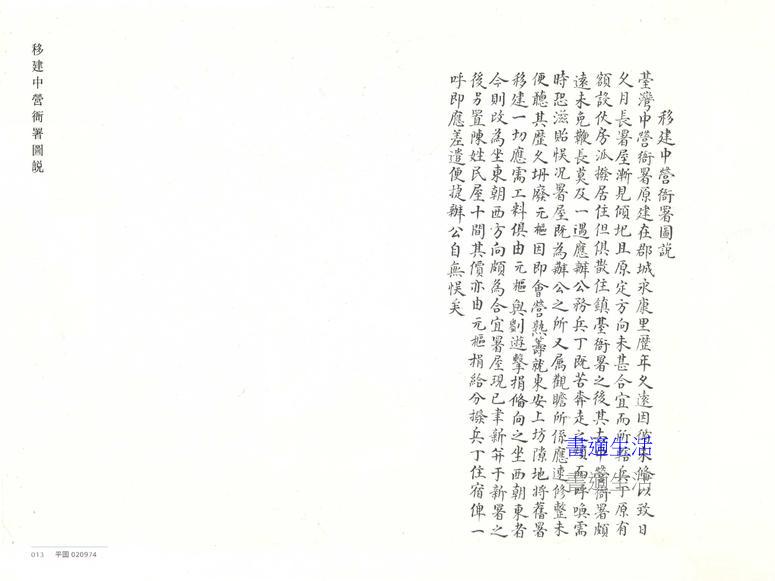 移建中營衙署圖説
臺灣中營衙署原建在郡城永康里歷年久遠因未脩以致日
久月長署屋漸見傾圮且原定方向未甚合宜而所轄兵丁原有
額設伙房派撥居住但俱散住鎮臺衙署之後其營衙署頗
遠未免鞭長莫及一遇應辦公務兵丁既苦奔走之而呼喚需
時恐滋貽悮况署屋既為辦公之所又属觀瞻所係應速修整未
便聽其歷久坍廢元樞因即會營熟籌就東安上坊隙地將舊署
移建一切應需工料俱由元樞與劉遊擊捐脩向之坐西朝東者
今則改為坐東朝西方向頗為合宜署屋現已聿新并于新署之
後另置陳姓民屋十間其價亦由元樞捐給分撥兵丁住宿俾一
呼即應差遣便捷辦公自無悮矣
書適生活
書適生活
移建中營衙署圖説
013 平図 020974